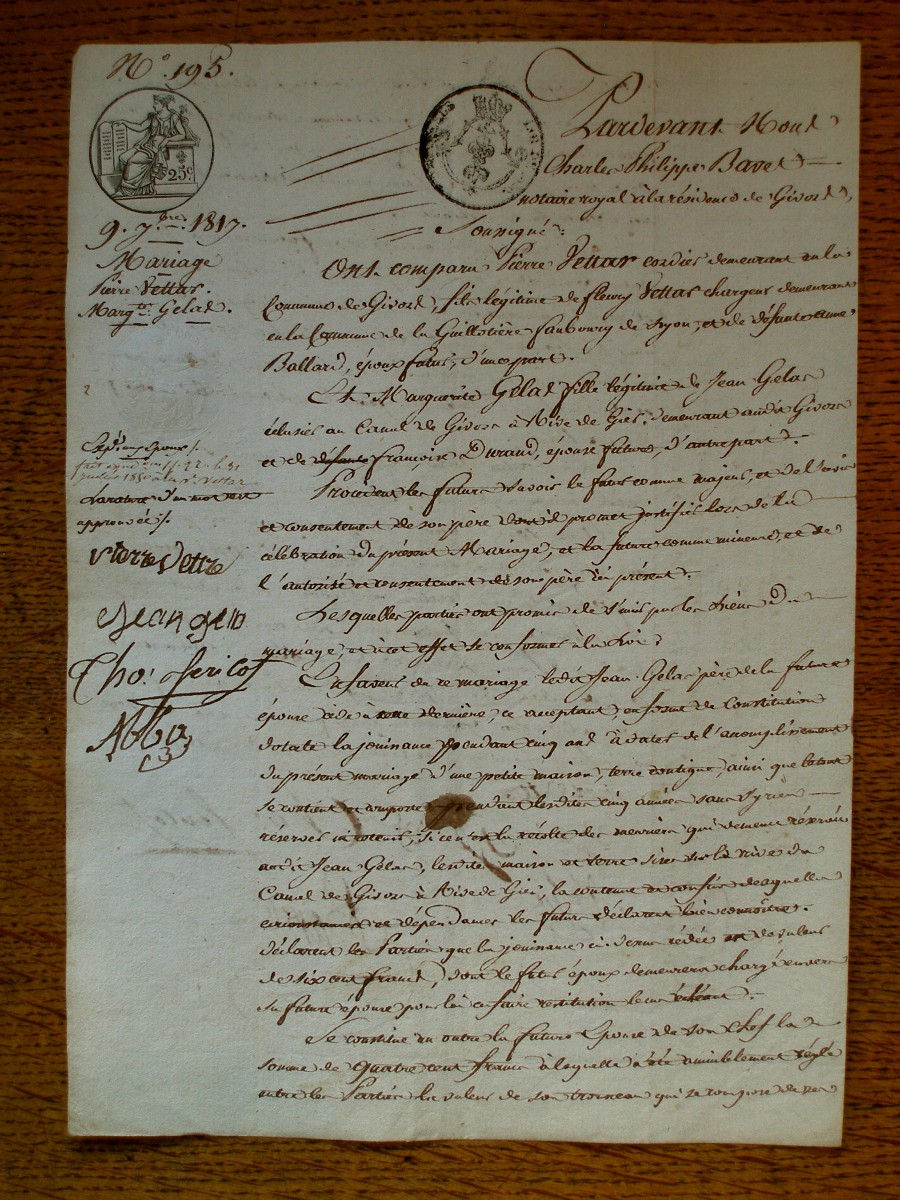 N.° 195.
25c
9. 7.bre 1817.
Mariage
Pierre Vettar.
Marg.te Gelas.
Expé. aux époux /.
rature d'un mot nul
approuvée /.
pierre vettre
Jean gela
Pardevant Nous
Charles Philippe Bavet
notaire royal à la résidence de Givors,
Soussigné:
Ont comparu Pierre Vettar cordier demeurant en la
Commune de Givors, fils légitime de fleury Vettar chargeur demeurant
en la Commune de la Guillotière faubourg de Lyon, et de défunte anne
Ballard, époux futur, d'une part.
Et Marguerite Gelas fille légitime de Jean Gelas
éclusier au Canal de Givors à Rive de Gier, demeurant audit Givors
et de défunte françoise Durand, épouse future, d'autre part.
Procèdent les futurs savoir le futur comme majeur, et de l'avis
et consentement de son père dont il promet justifier lors de la
célébration du présent Mariage, et la future comme mineure, et de
l'autorité et consentement de son père ici présent.
Lesquelles parties ont promis de s'unir par les liens du
mariage, et à cet effet se conformer à la Loi.
En faveur du ce mariage ledit Jean Gelas père de la future
épouse cède à cette dernière, ce acceptant, en forme de Constitution
dotale la jouissance pendant cinq ans à dater de l'accomplissement
du présent mariage d'une petite maison, terre contigue, ainsi que le tout
se contient et comporte pendant lesdites cinq années sans
réserves si ce n'est la récolte des meuriers qui demeure réservée
audit Jean Gelas, lesdites maison et terre sises sur la rive du
Canal de Givors à Rive de Gier, la contenue de confins desquelles
et dépendances les futurs déclarent bien connoître.
déclarent les Parties que la jouissance ci-dessus cédée est de valeur
de six cent francs, dont le futur époux demeurera chargé envers
sa future épouse pour lui en faire restitution le cas échéant.
Se constitue en outre la future Epouse de son Chef la
somme de quatre cent francs à laquelle a été amiablement réglé
entre les Parties la valeur de son trousseau qui se compose de ses